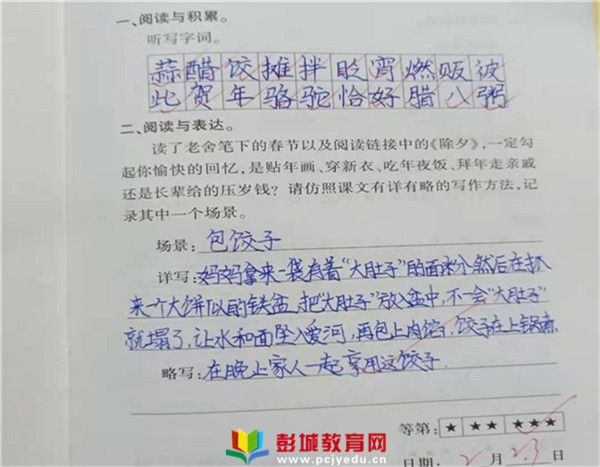 一、阅读与积累。
听写字词。
蒜醋饺摊拌眨宵燃贩彼
此贺年骆驼恰好腊八粥
二、阅读与表达。
读了老舍笔下的春节以及阅读链接中的《除夕》,一定勾
起你愉快的回忆,是贴年画、穿新衣、吃年夜饭、拜年走亲戚
还是长辈给的压岁钱?请仿照课文有详有略的写作方法,记
录其中一个场景。
场景:包饺子
详写:妈妈拿来一袋有着“大肚子”的面粉,然后在抓
来一个大饼似的铁盆,把“大肚子”放入盆中,不一会“大肚子”
就塌了,让水和面坠入爱河,再包上肉馅,饺子在上锅
略写:在晚上家人一起享用这饺子.
等第: ★ ★★ ★★★
彭城教育网
www.pcjyedu.cn
日期: 2 月 23 日